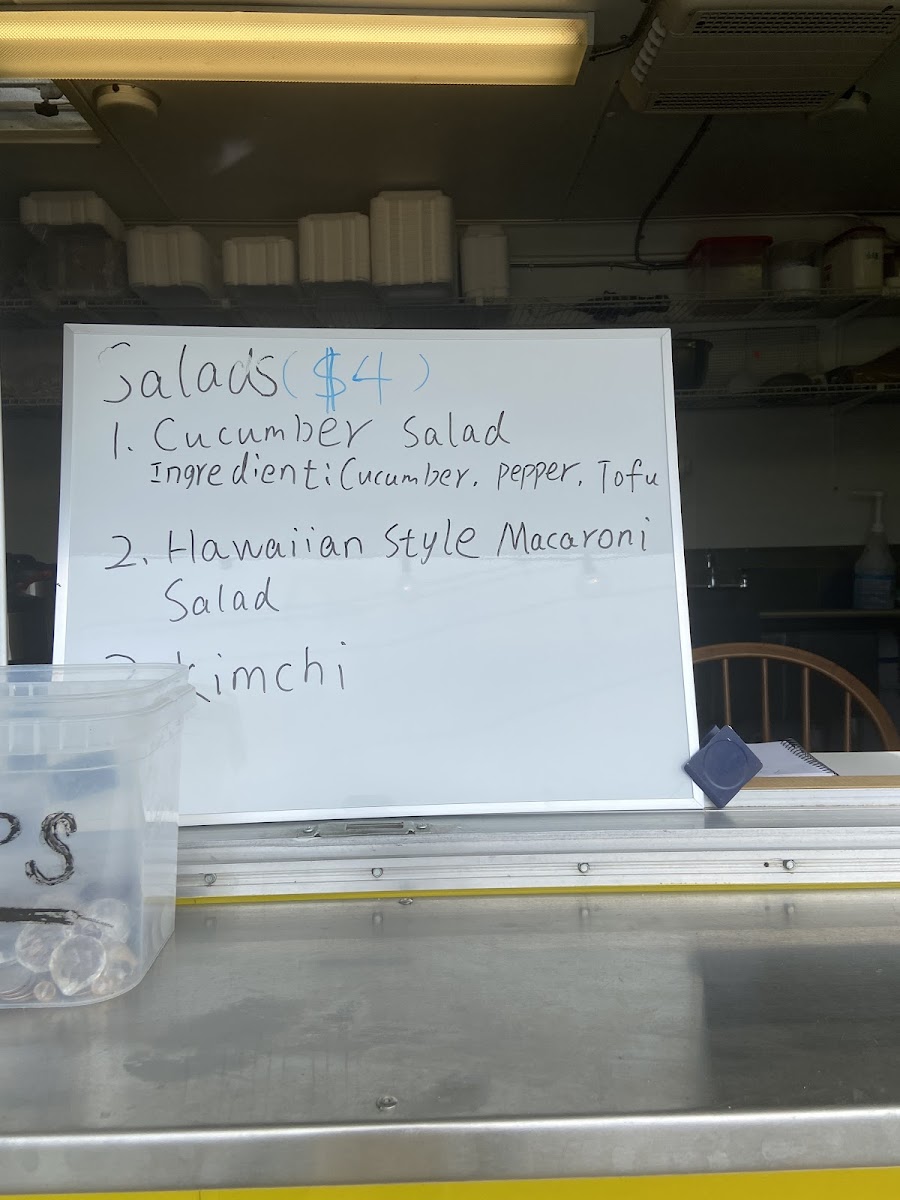 Salads ($4)
1. Cucumber Salad
Ingredient: Cucumber, pepper, Tofu
2. Hawaiian Style Macaroni
Salad
3. Kimchi
PS